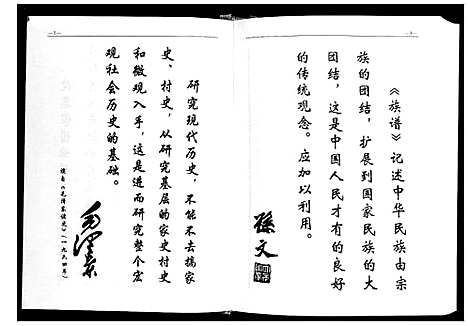 《族谱》记述中华民族由宗
族的团结，扩展到国家民族的大
团结，这是中国人民才有的良好
的传统观念。应加以利用。
孙文
研究现代历史，不能不去搞家
史、村史，从研究基层的家史村史
和微观入手，这是进而研究整个宏
观社会历史的基础。
毛泽东